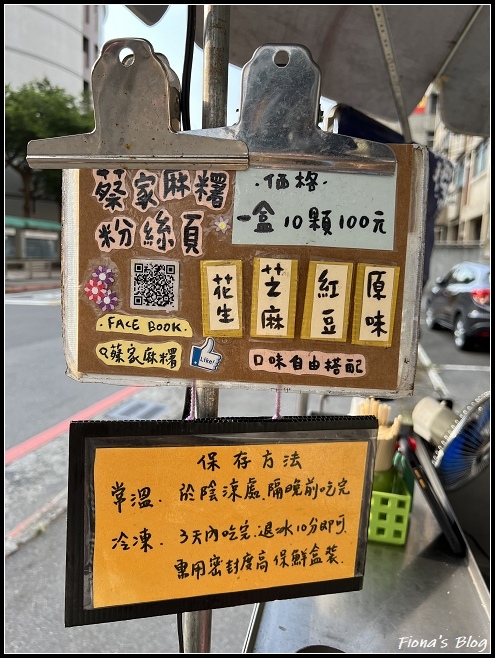 蔡家麻糬
粉絲頁
FACE BOOK.
蔡家麻糬
Like!
.価格.
一盒 10顆 100元
花生
芝麻
紅豆
原味
口味自由搭配
保存方法
常溫. 於陰涼處.隔晚前吃完
冷凍. 3天內吃完.退冰10分即可.
專用密封度高保鮮盒裝.
Fiona's Blog